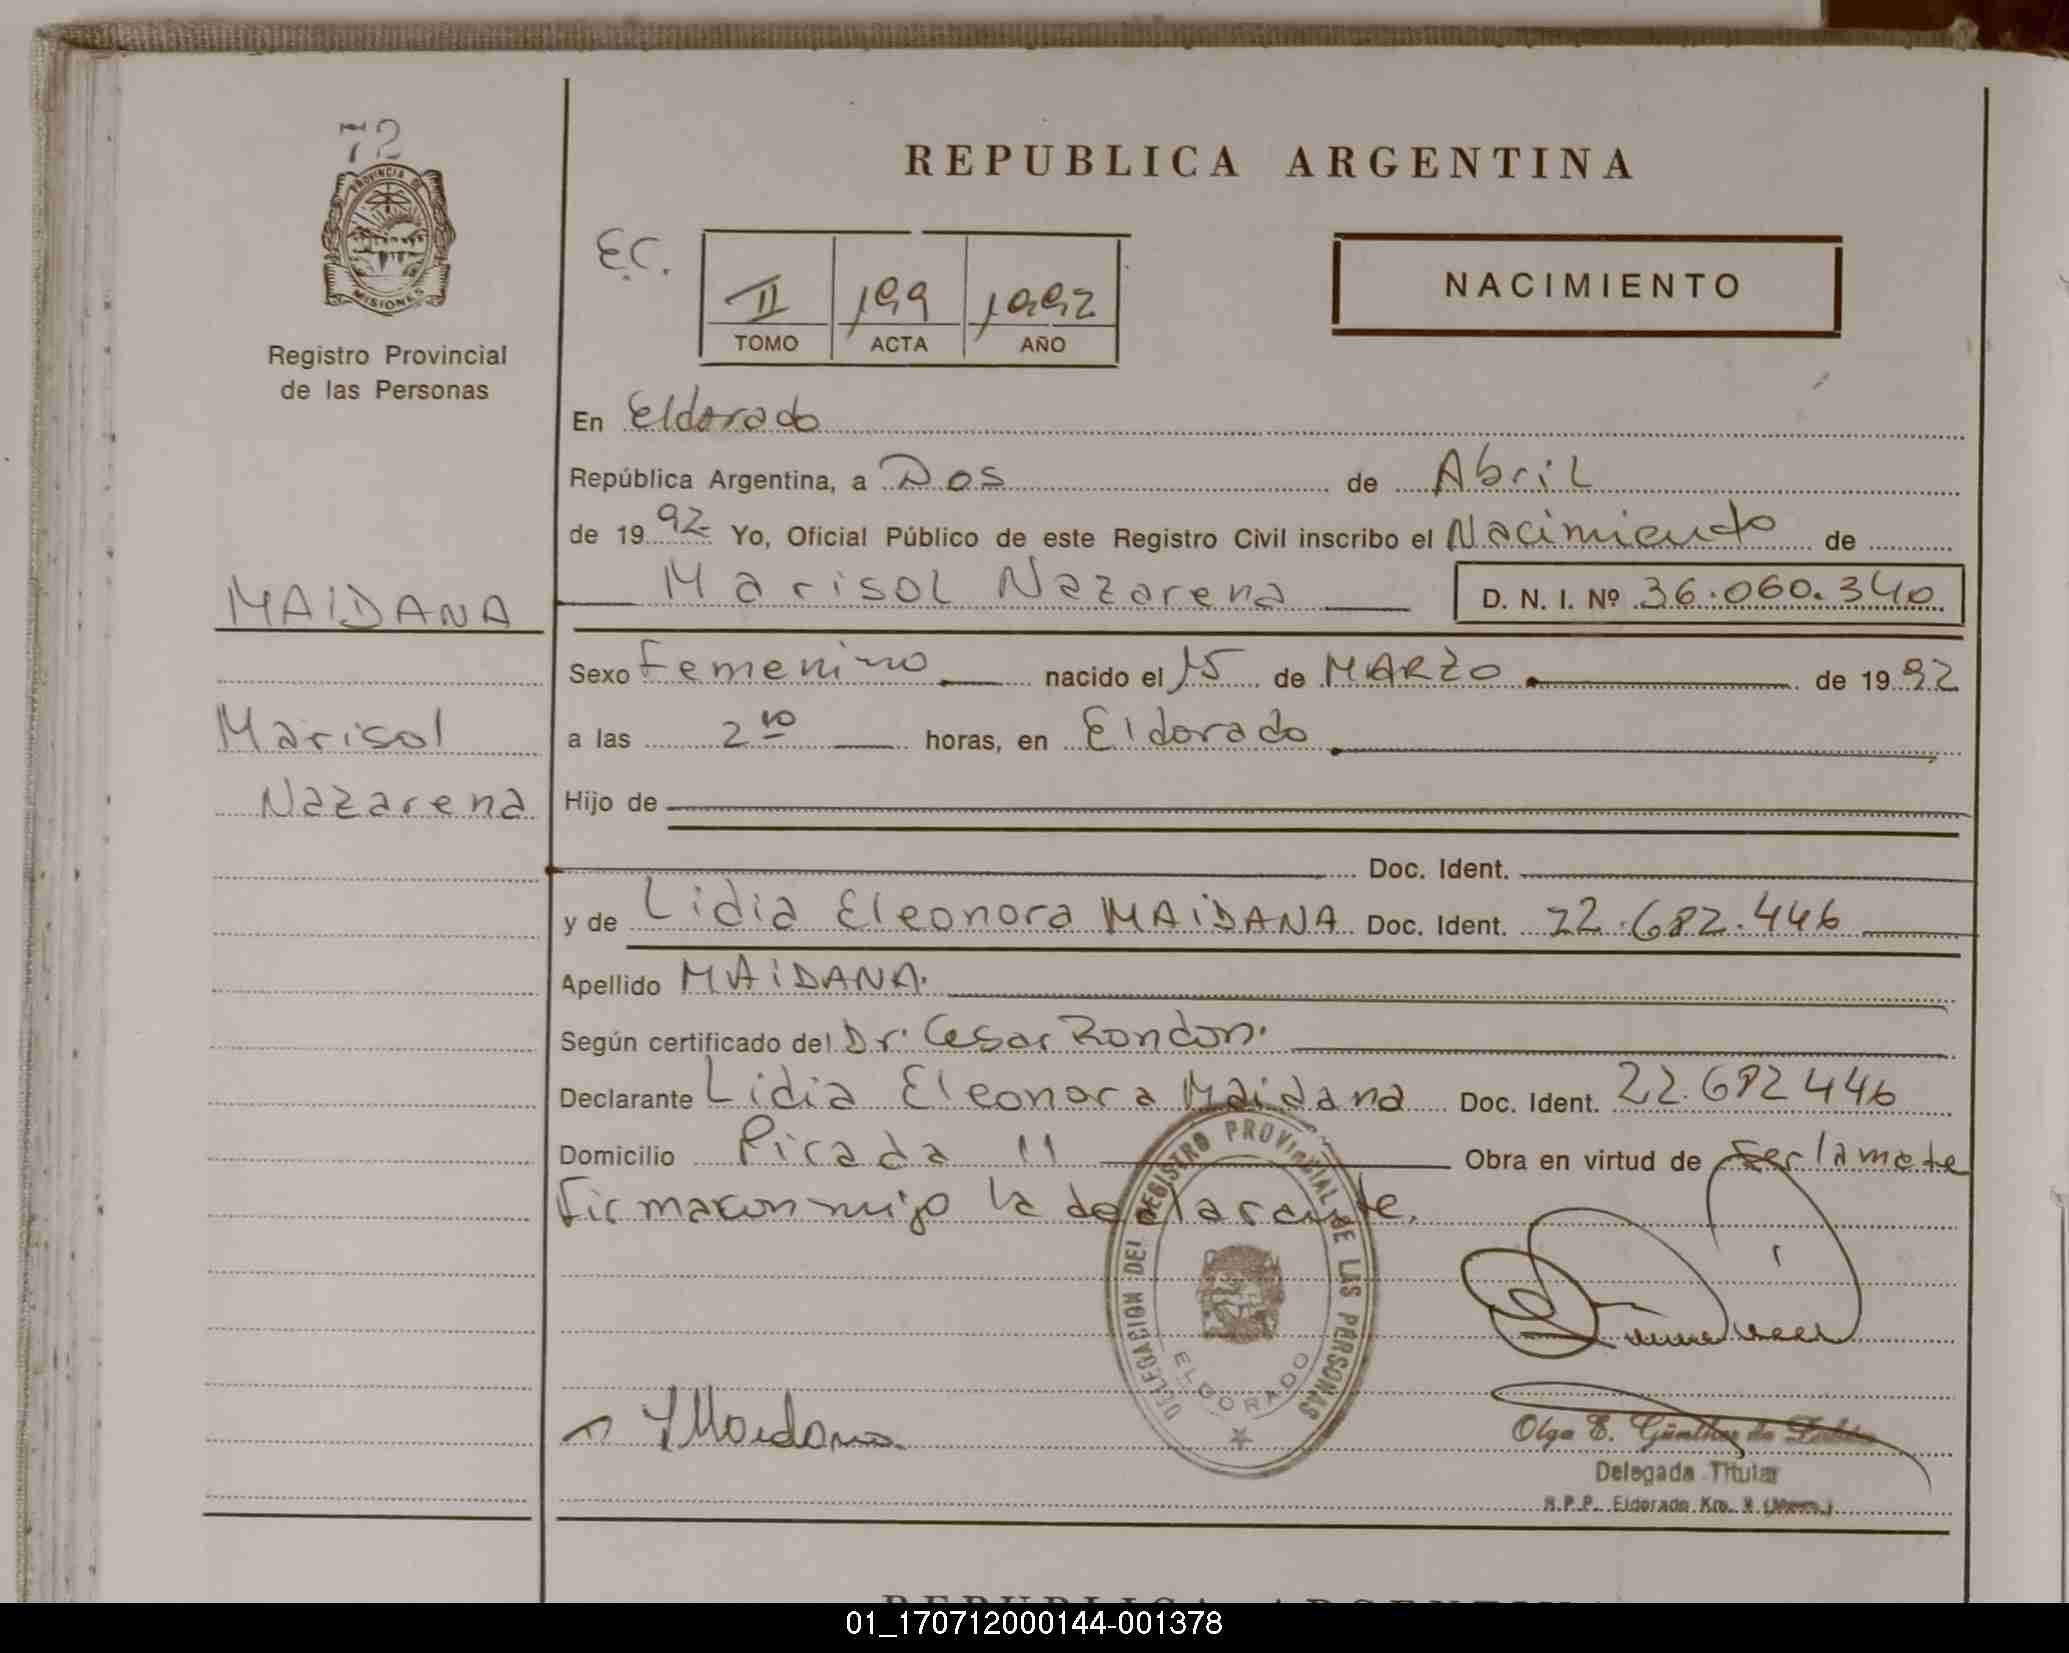 72
PROVINCIA DE
MISIONES
Registro Provincial
de las Personas
REPUBLICA ARGENTINA
E.C.
II 199 1992
TOMO ACTA AÑO
NACIMIENTO
En Eldorado
República Argentina, a Dos de Abril
de 1992 Yo, Oficial Público de este Registro Civil inscribo el Nacimiento de
MAIDANA
Marisol Nazarena D. N. I. Nº 36.060.340
Sexo Femenino nacido el 15 de MARZO de 1992
Marisol
a las 2 10 horas, en Eldorado
Nazarena
Hijo de
Doc. Ident.
y de Lidia Eleonora MAIDANA Doc. Ident. 22.682.446
Apellido MAIDANA.
Según certificado del Dr. Cesar Rondon.
Declarante Lidia Eleonora Maidana Doc. Ident. 22.682446
Domicilio Picada 11 Obra en virtud de
Firma conmigo la declarante.
DELEGACION DEL REGISTRO PROVINCIAL DE LAS PERSONAS
ELDORADO
Maidana
Olga E. Günther de
Delegada Titular
R.P.P. Eldorado Km. 9 (Mnes.)
REPUBLICA ARGENTINA
01_170712000144-001378